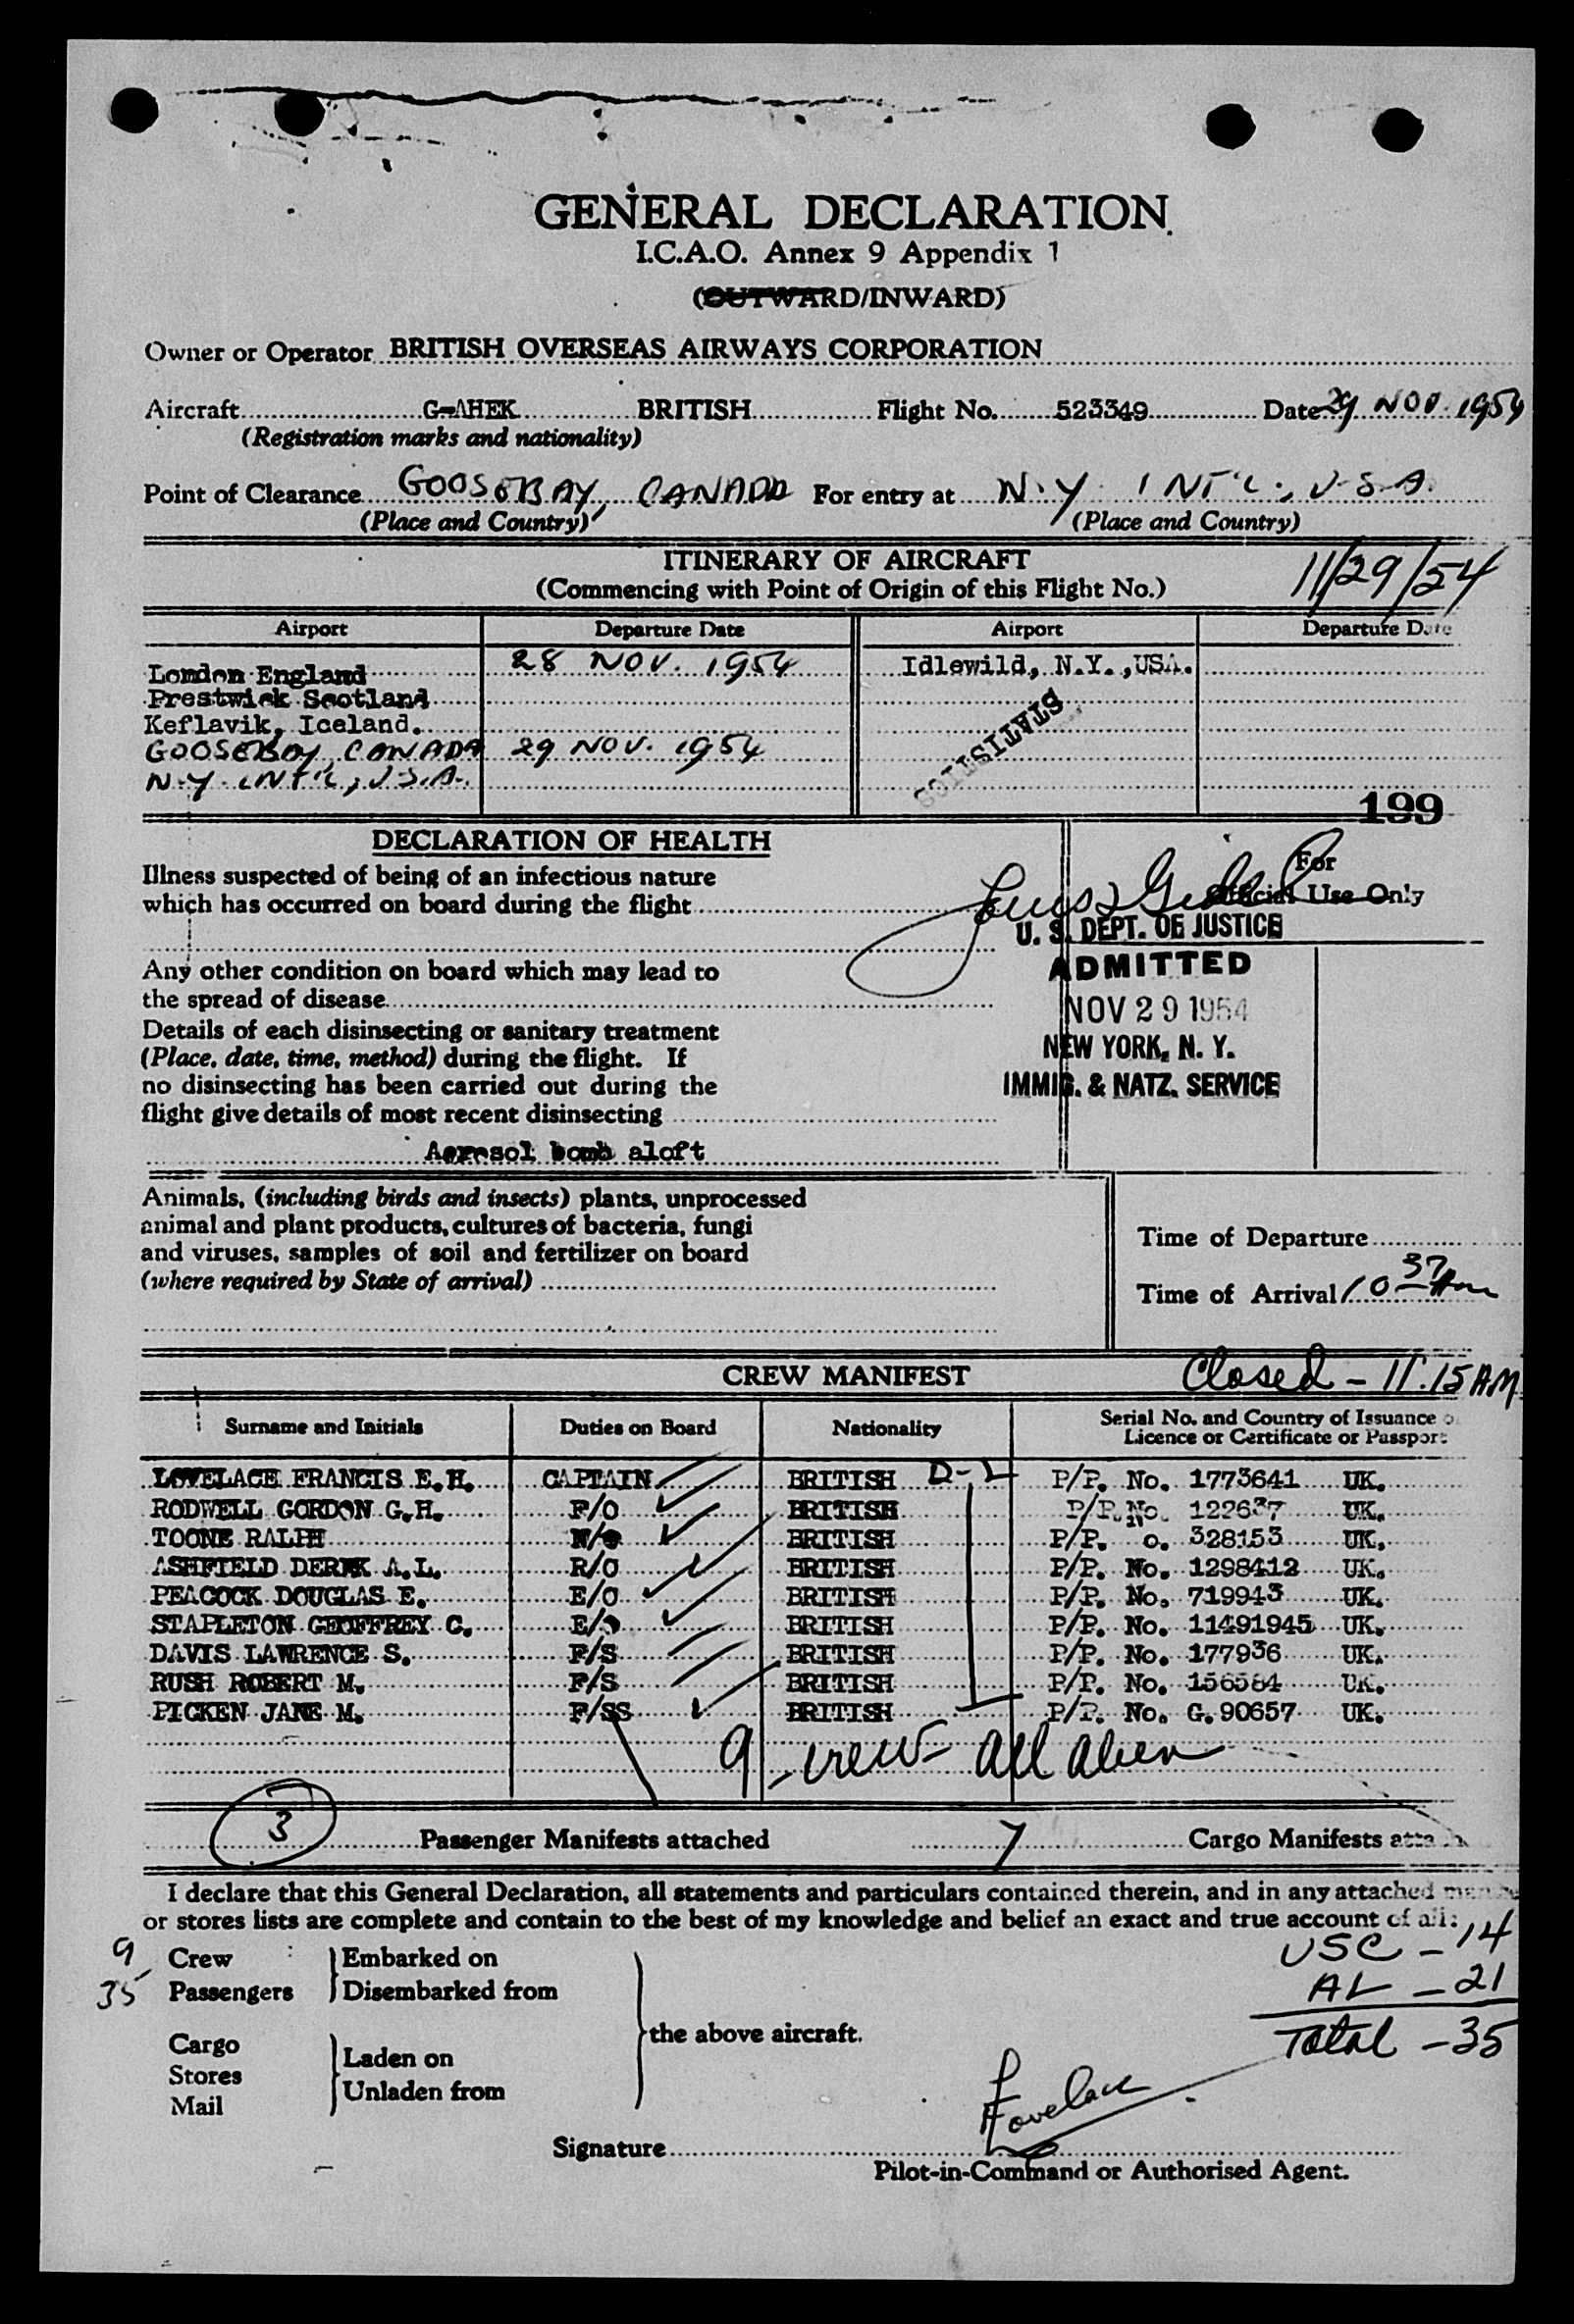 GENERAL DECLARATION
I.C.A.O. Annex 9 Appendix 1
(OUTWARD/INWARD)
Owner or Operator BRITISH OVERSEAS AIRWAYS CORPORATION
Aircraft G-AHEK BRITISH Flight No. 523349 Date 29 NOV. 1954
(Registration marks and nationality)
Point of Clearance GOOSEBAY, CANADA For entry at N.Y. INT'L., U.S.A.
(Place and Country) (Place and Country)
ITINERARY OF AIRCRAFT
(Commencing with Point of Origin of this Flight No.) 11/29/54
Airport Departure Date Airport Departure Date
London England 28 NOV. 1954 Idlewild, N.Y.,USA.
Prestwick Scotland
Keflavik, Iceland.
GOOSEBAY, CANADA 29 NOV. 1954
N.Y. INT'L, U.S.A.
STATISTICS
199
DECLARATION OF HEALTH
For
Official Use Only
Illness suspected of being of an infectious nature
which has occurred on board during the flight
U. S. DEPT. OF JUSTICE
ADMITTED
NOV 29 1954
NEW YORK, N. Y.
IMMIG. & NATZ. SERVICE
Any other condition on board which may lead to
the spread of disease
Details of each disinsecting or sanitary treatment
(Place, date, time, method) during the flight. If
no disinsecting has been carried out during the
flight give details of most recent disinsecting
Aerosol bomb aloft
Animals, (including birds and insects) plants, unprocessed
animal and plant products, cultures of bacteria, fungi
and viruses, samples of soil and fertilizer on board
(where required by State of arrival)
Time of Departure
Time of Arrival 10 37 Am
CREW MANIFEST Closed - 11.15 AM
Surname and Initials Duties on Board Nationality Serial No. and Country of Issuance o
Licence or Certificate or Passport
LOVELACE FRANCIS E.H. CAPTAIN BRITISH D-L P/P. No. 1773641 UK.
RODWELL GORDON G.H. F/O BRITISH P/P. No. 122637 UK.
TOONE RALPH N/O BRITISH P/P. o. 328153 UK.
ASHFIELD DEREK A.L. R/O BRITISH P/P. No. 1298412 UK.
PEACOCK DOUGLAS E. E/O BRITISH P/P. No. 719943 UK.
STAPLETON GEOFFREY C. E/O BRITISH P/P. No. 11491945 UK.
DAVIS LAWRENCE S. F/S BRITISH P/P. No. 177936 UK.
RUSH ROBERT M. F/S BRITISH P/P. No. 156584 UK.
PICKEN JANE M. F/SS BRITISH P/P. No. G.90657 UK.
9 crew - all alien
3 Passenger Manifests attached 7 Cargo Manifests atta
I declare that this General Declaration, all statements and particulars contained therein, and in any attached
or stores lists are complete and contain to the best of my knowledge and belief an exact and true account of all:
9 Crew Embarked on
35 Passengers Disembarked from
the above aircraft.
Cargo
Stores
Mail
Laden on
Unladen from
USC - 14
AL - 21
Total - 35
Lovelace
Signature
Pilot-in-Command or Authorised Agent.